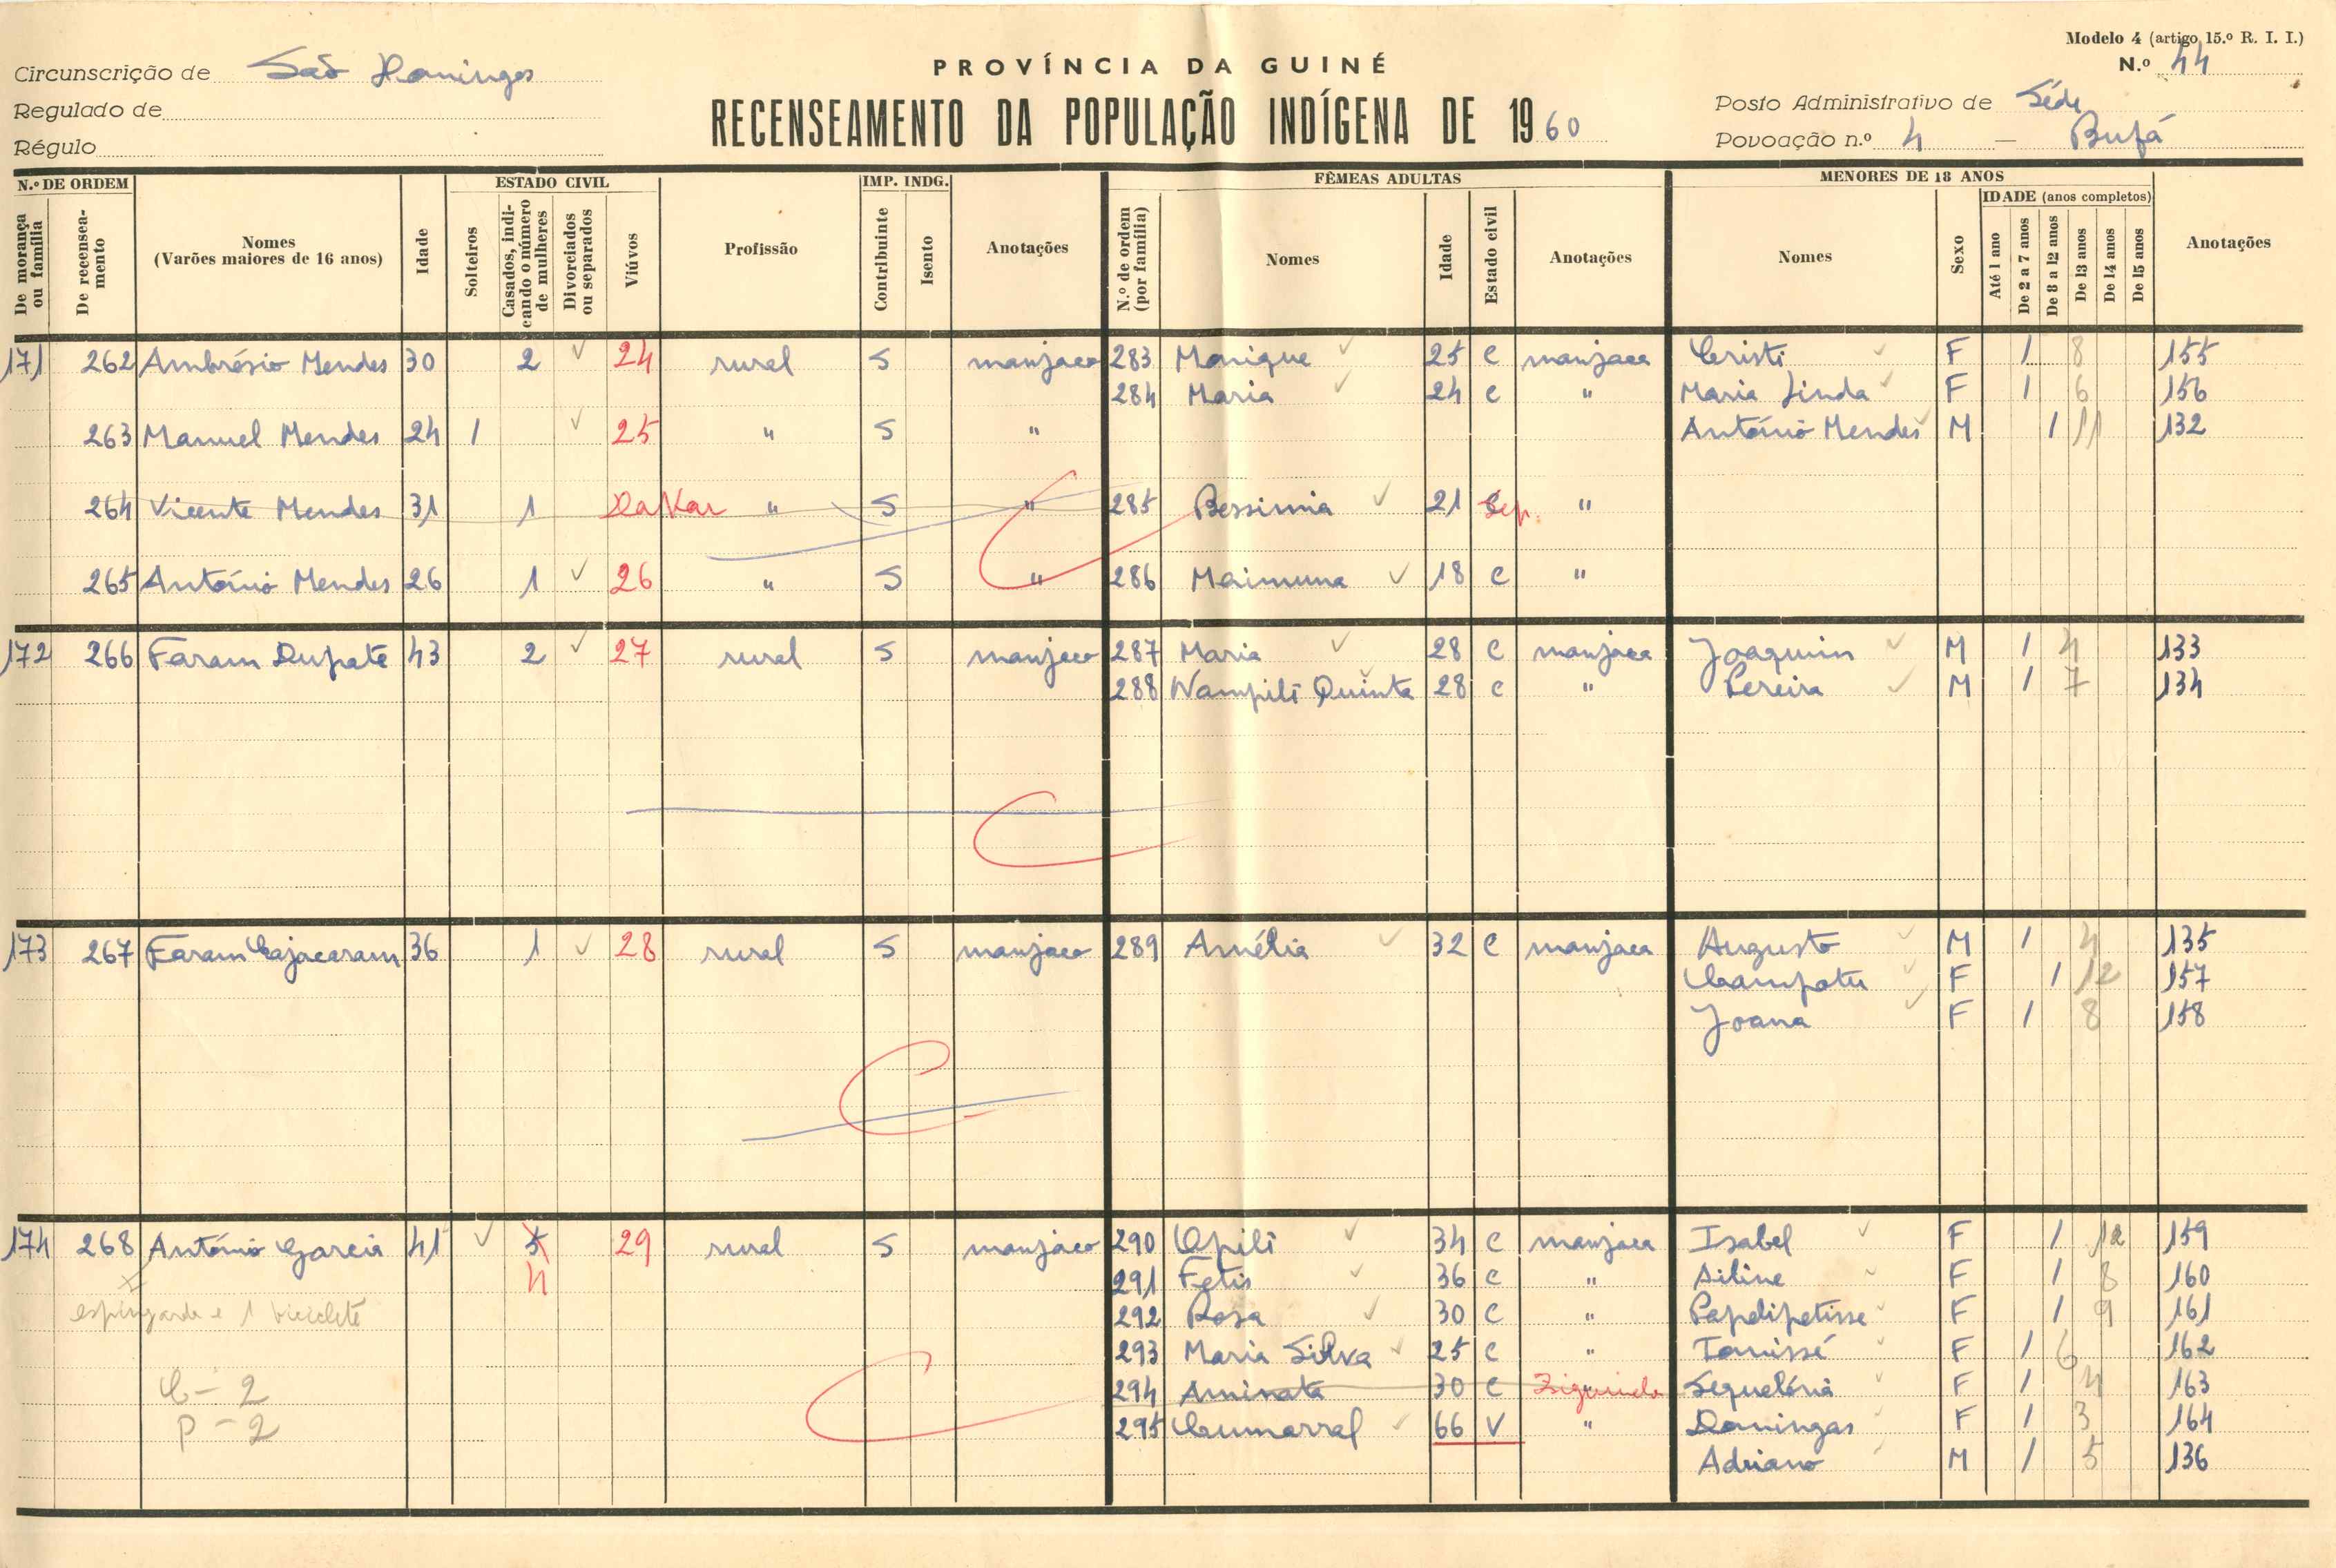 Modelo 4 (artigo 15.º R. I. I.)
PROVÍNCIA DA GUINÉ
N.º 44
Circunscrição de São Domingos
Regulado de
Régulo
RECENSEAMENTO DA POPULAÇÃO INDÍGENA DE 1960
Posto Administrativo de Séde
Povoação n.º 4 — Bufá
N.º DE ORDEM
De morança ou família
De recenseamento
Nomes (Varões maiores de 16 anos)
Idade
ESTADO CIVIL
Solteiros
Casados, indicando o número de mulheres
Divorciados ou separados
Viúvos
Profissão
IMP. INDG.
Contribuinte
Isento
Anotações
FÊMEAS ADULTAS
N.º de ordem (por família)
Nomes
Idade
Estado civil
Anotações
MENORES DE 18 ANOS
Nomes
Sexo
IDADE (anos completos)
Até 1 ano
De 2 a 7 anos
De 8 a 12 anos
De 13 anos
De 14 anos
De 15 anos
Anotações
171 262 Ambrósio Mendes 30 2 ✓ 24 rural S manjaco 283 Monique ✓ 25 c manjaca Cristi ✓ F 1 8 155
284 Maria ✓ 24 c " Maria Linda ✓ F 1 6 156
263 Manuel Mendes 24 1 ✓ 25 " S " António Mendes ✓ M 1 11 132
264 Vicente Mendes 31 1 Dakar " S " 285 Bessimia ✓ 21 Sep. "
265 António Mendes 26 1 ✓ 26 " S " 286 Maimuna ✓ 18 c "
172 266 Faram Dupate 43 2 ✓ 27 rural S manjaco 287 Maria ✓ 28 c manjaca Joaquim ✓ M 1 4 133
288 Nampili Quinta ✓ 28 c " Pereira ✓ M 1 7 134
173 267 Faram Cajacaram 36 1 ✓ 28 rural S manjaco 289 Amélia ✓ 32 c manjaca Augusto ✓ M 1 4 135
Campatu ✓ F 1 12 157
Joana ✓ F 1 8 158
174 268 António Garcia 41 ✓ 5 29 rural S manjaco 290 Opili ✓ 34 c manjaca Isabel ✓ F 1 12 159
4 291 Fetis ✓ 36 c " Ailine ✓ F 1 8 160
espingarda e 1 bicicleta 292 Rosa ✓ 30 c " Papelipetisse ✓ F 1 9 161
293 Maria Silva ✓ 25 c " Tomissé ✓ F 1 6 162
C - 2 294 Aminata 30 c " Sequelória ✓ F 1 4 163
P - 2 295 Cumarral ✓ 66 V " Domingas ✓ F 1 3 164
Adriano ✓ M 1 5 136